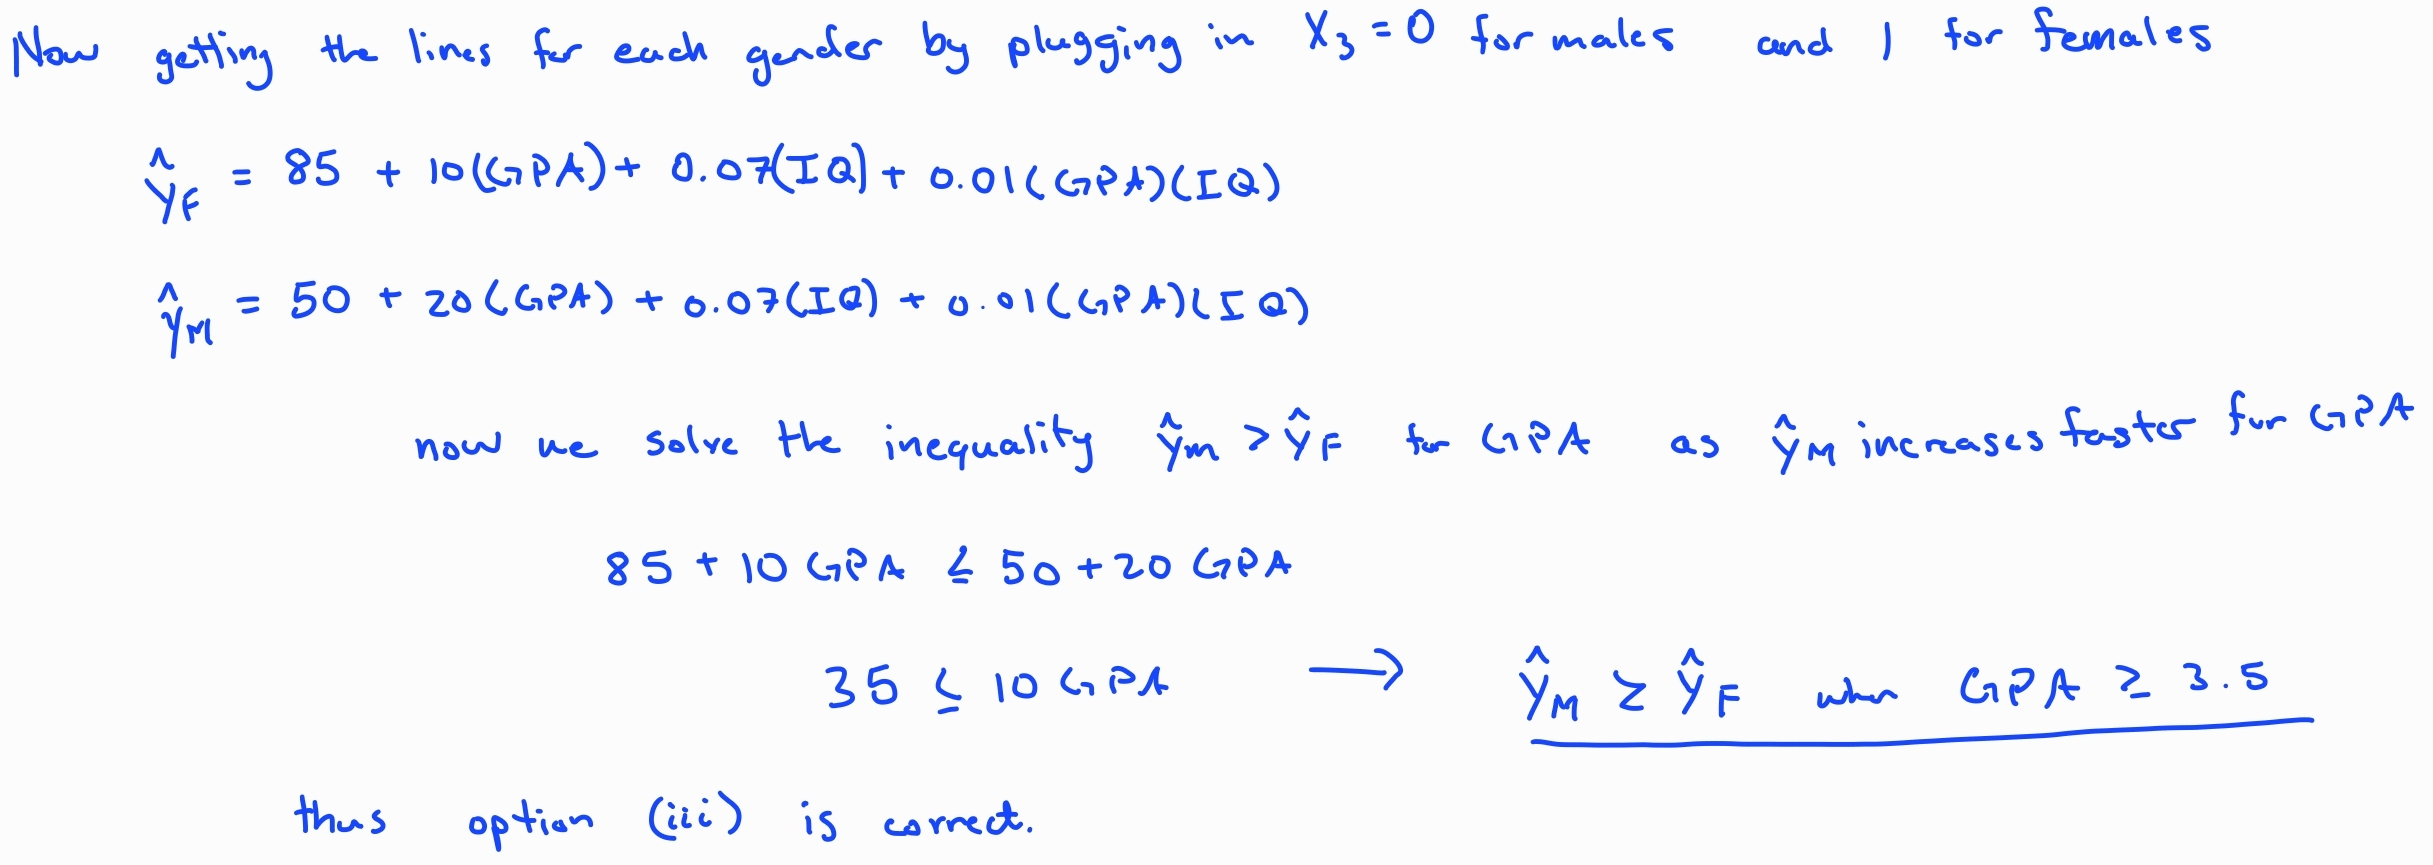 Now getting the lines for each gender by plugging in X₃ = 0 for males and 1 for females
Ŷ_F = 85 + 10(GPA) + 0.07(IQ) + 0.01(GPA)(IQ)
Ŷ_M = 50 + 20(GPA) + 0.07(IQ) + 0.01(GPA)(IQ)
now we solve the inequality Ŷ_M > Ŷ_F for GPA as Ŷ_M increases faster for GPA
85 + 10 GPA ≤ 50 + 20 GPA
35 ≤ 10 GPA → Ŷ_M ≥ Ŷ_F when GPA ≥ 3.5
thus option (iii) is correct.